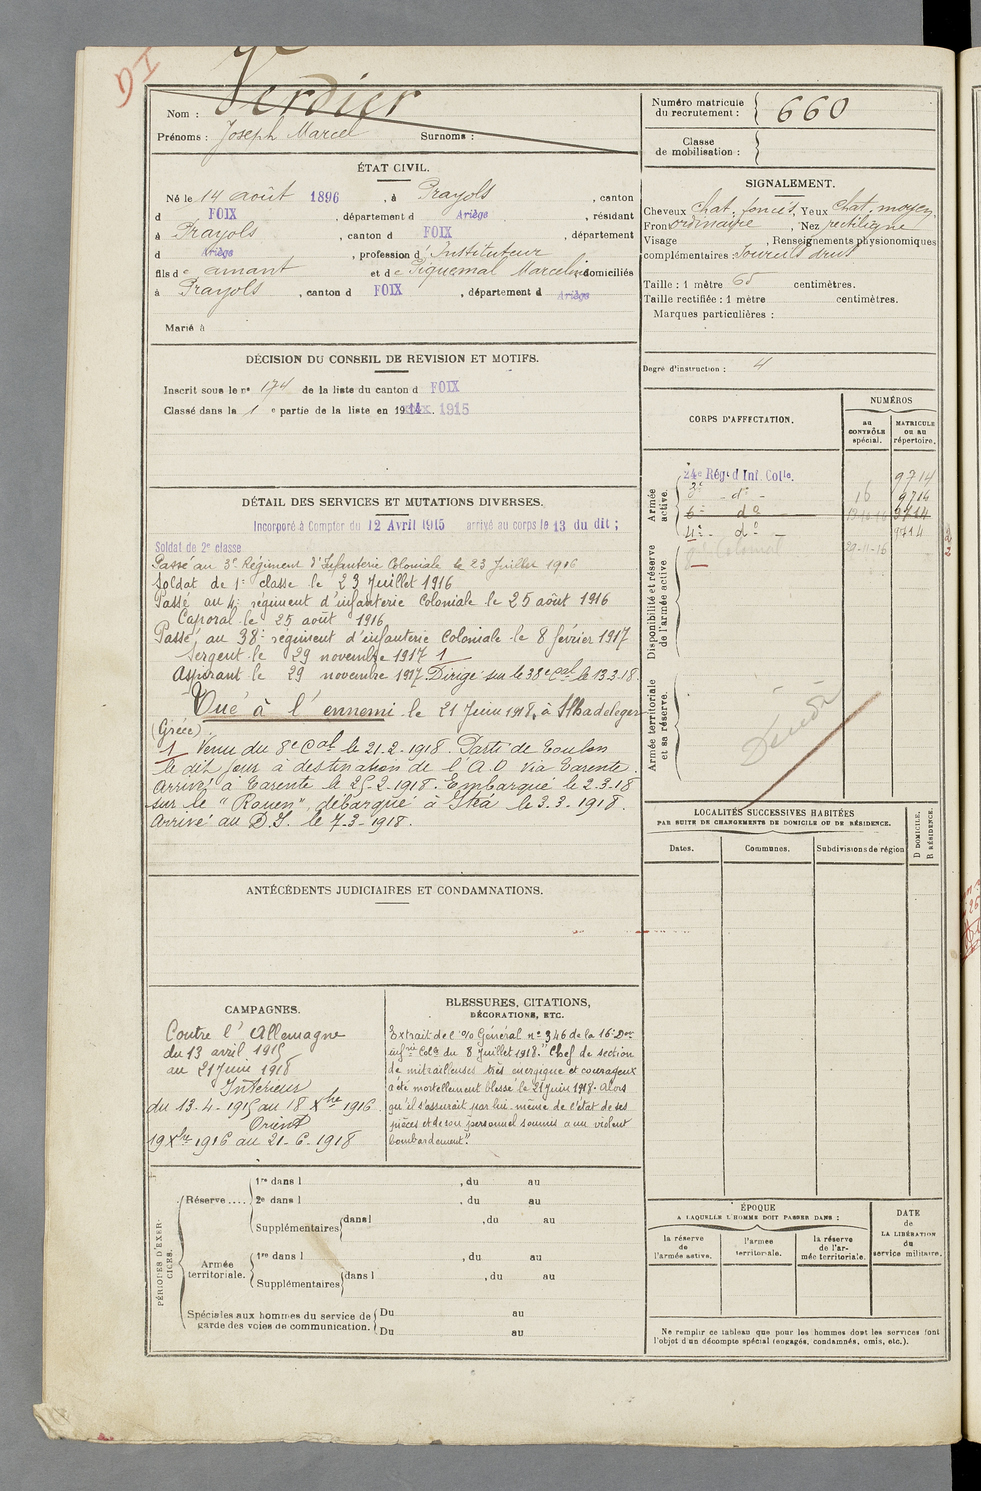 IG
Nom : Verdier
Prénoms : Joseph Marcel Surnoms :
Numéro matricule du recrutement : 660
Classe de mobilisation :
ÉTAT CIVIL.
Né le 14 août 1896, à Prayols, canton
d FOIX, département d Ariège, résidant
à Prayols, canton d FOIX, département
d Ariège, profession d'Instituteur
fils de amant et de Piquemal Marceline domiciliés
à Prayols, canton d FOIX, département d Ariège
Marié à
SIGNALEMENT.
Cheveux chat. foncés, Yeux chat. moyen,
Front ordinaire, Nez rectiligne
Visage , Renseignements physionomiques
complémentaires : Sourcils drus
Taille : 1 mètre 65 centimètres.
Taille rectifiée : 1 mètre centimètres.
Marques particulières :
Degré d'instruction : 4
DÉCISION DU CONSEIL DE REVISION ET MOTIFS.
Inscrit sous le n° 174 de la liste du canton d FOIX
Classé dans la 1 e partie de la liste en 1914 1915
DÉTAIL DES SERVICES ET MUTATIONS DIVERSES.
Incorporé à Compter du 12 Avril 1915 arrivé au corps le 13 du dit ;
Soldat de 2e classe
Passé au 3e Régiment d'Infanterie Coloniale le 23 Juillet 1916
Soldat de 1e classe le 23 Juillet 1916
Passé au 4e régiment d'infanterie Coloniale le 25 août 1916
Caporal le 25 août 1916
Passé au 38e régiment d'infanterie Coloniale le 8 février 1917
Sergent le 29 novembre 1917 1
Aspirant le 29 novembre 1917 Dirigé sur le 38e Cal le 13.3.18.
Tué à l'ennemi le 21 Juin 1918, à
(Grèce)
1 Venu du 8e Cal le 21-2-1918. Parti de Toulon
le dit jour à destination de l'A.O via Tarente.
Arrivé à Tarente le 25-2-1918. Embarqué le 2-3-18
sur le "Rouen", débarqué à Itéa le 3-3-1918.
Arrivé au D.I. le 7-3-1918.
CORPS D'AFFECTATION.
NUMÉROS
au CONTRÔLE spécial.
MATRICULE ou au répertoire.
Armée active.
24e Régt d'Inf. Colle. 9714
3e - do - 16 9714
6e do 9714
4e - do - 9714
20-11-16
Colonial
Disponibilité et réserve de l'armée active
Armée territoriale et sa réserve.
LOCALITÉS SUCCESSIVES HABITÉES
PAR SUITE DE CHANGEMENTS DE DOMICILE OU DE RÉSIDENCE.
Dates. Communes. Subdivisions de région
D DOMICILE. R RÉSIDENCE.
ANTÉCÉDENTS JUDICIAIRES ET CONDAMNATIONS.
CAMPAGNES.
Contre l'Allemagne
du 13 avril 1915
au 21 Juin 1918
Intérieur
du 13-4-1915 au 18 Xbre 1916
Orient
19 Xbre 1916 au 21-6-1918
BLESSURES, CITATIONS,
DÉCORATIONS, ETC.
Extrait de l'O/ Général n° 346 de la 16e Don
infrie Cole du 8 Juillet 1918. "Chef de section
de mitrailleuses très energique et courageux
a été mortellement blessé le 21 Juin 1918. Alors
qu'il s'assurait par lui-même de l'état de ses
pièces et de son personnel soumis a un violent
bombardement".
PÉRIODES D'EXERCICES.
Réserve .... 1re dans l , du au
2e dans l , du au
Supplémentaires dans l , du au
Armée territoriale. 1re dans l , du au
Supplémentaires dans l , du au
Spéciales aux hommes du service de garde des voies de communication. Du au
Du au
ÉPOQUE
A LAQUELLE L'HOMME DOIT PASSER DANS :
la réserve de l'armée active.
l'armée territoriale.
la réserve de l'armée territoriale.
DATE de LA LIBÉRATION du service militaire.
Ne remplir ce tableau que pour les hommes dont les services font
l'objet d'un décompte spécial (engagés, condamnés, omis, etc.).